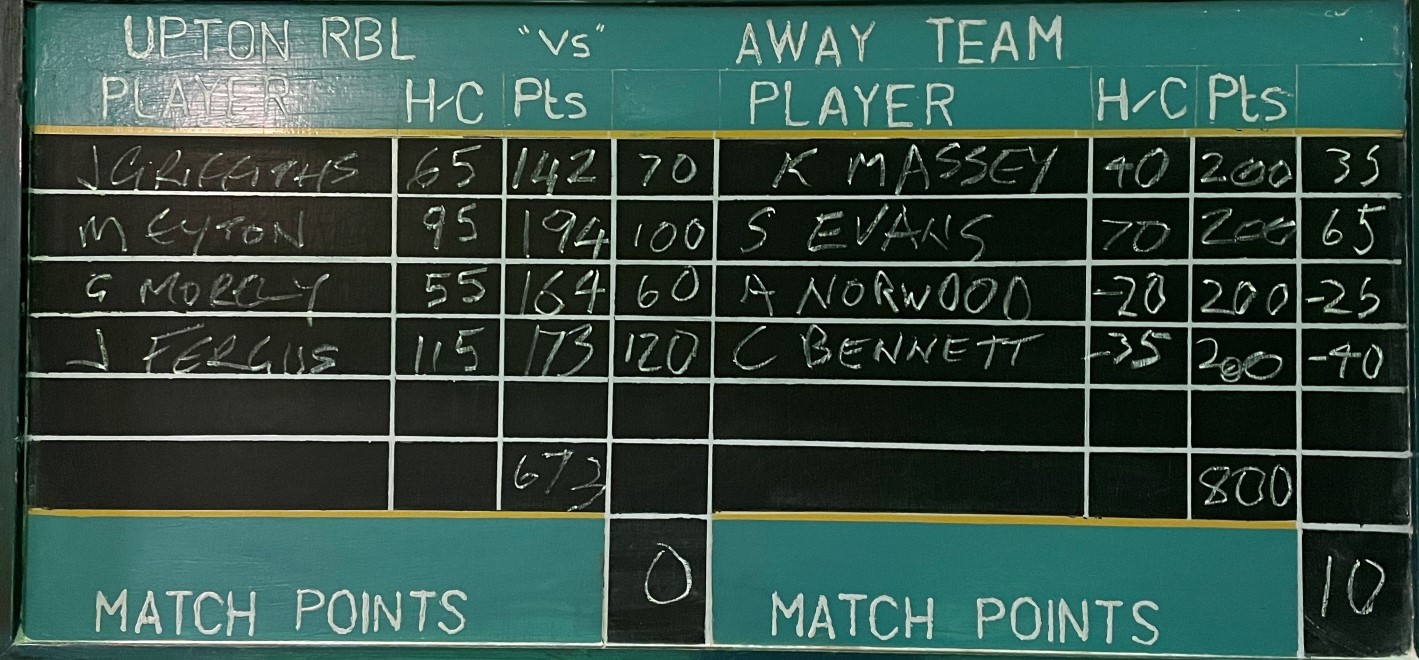 UPTON RBL "VS" AWAY TEAM
PLAYER H/C Pts PLAYER H/C Pts
J GRIFFITHS 65 142 70 K MASSEY 40 200 35
M EYTON 95 194 100 S EVANS 70 200 65
G 55 164 60 A NORWOOD -20 200 -25
J FERGUS 115 173 120 C BENNETT -35 200 -40
673 800
MATCH POINTS 0 MATCH POINTS 10